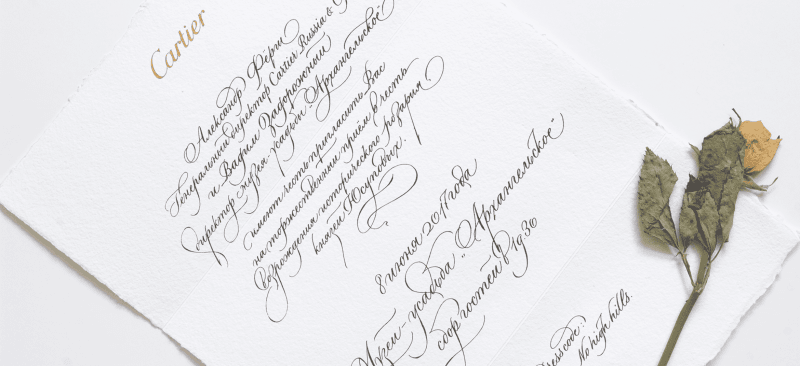 Cartier
Александр Фёрт
Генеральный директор Cartier Russia &
и Вадим Задорожный
директор музея усадьбы Архангельское
имеют честь пригласить Вас
на торжественный приём в честь
возрождения исторического розария
князей Юсуповых.
8 июня 2017 года
Музей-усадьба „Архангельское"
сбор гостей в 19³⁰
Dresscode:
No high hills.